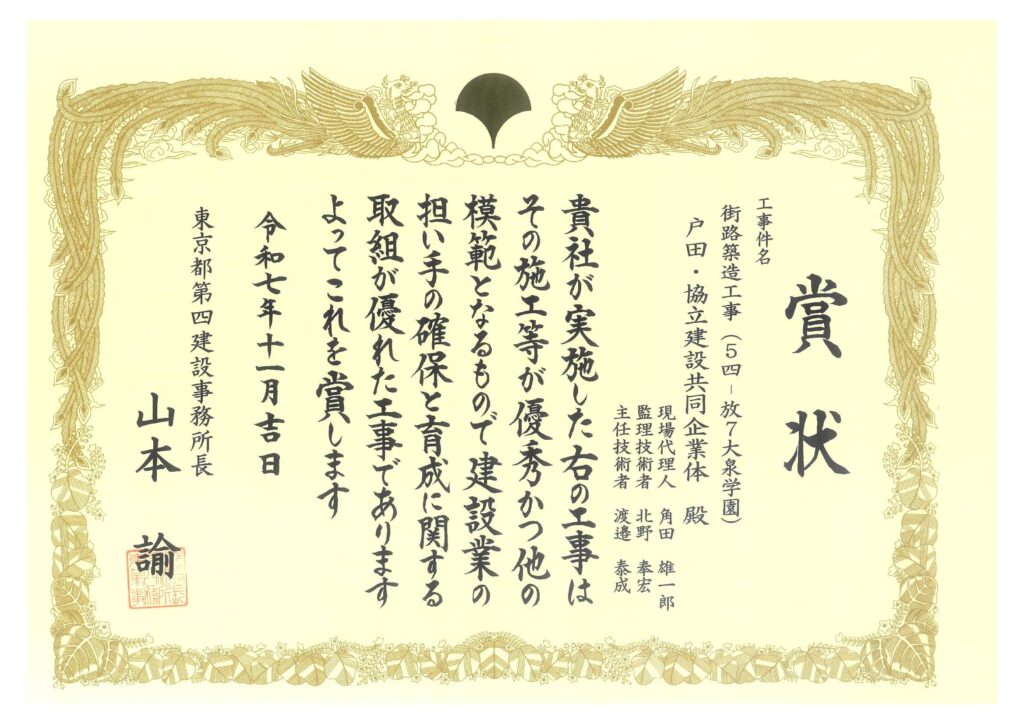 賞状
工事件名
街路築造工事(5四-放7大泉学園)
戸田・協立建設共同企業体 殿
現場代理人 角田 雄一郎
監理技術者 北野 奉宏
主任技術者 渡邉 泰成
貴社が実施した右の工事は
その施工等が優秀かつ他の
模範となるもので建設業の
担い手の確保と育成に関する
取組が優れた工事であります
よってこれを賞します
令和七年十一月吉日
東京都第四建設事務所長
山本 諭